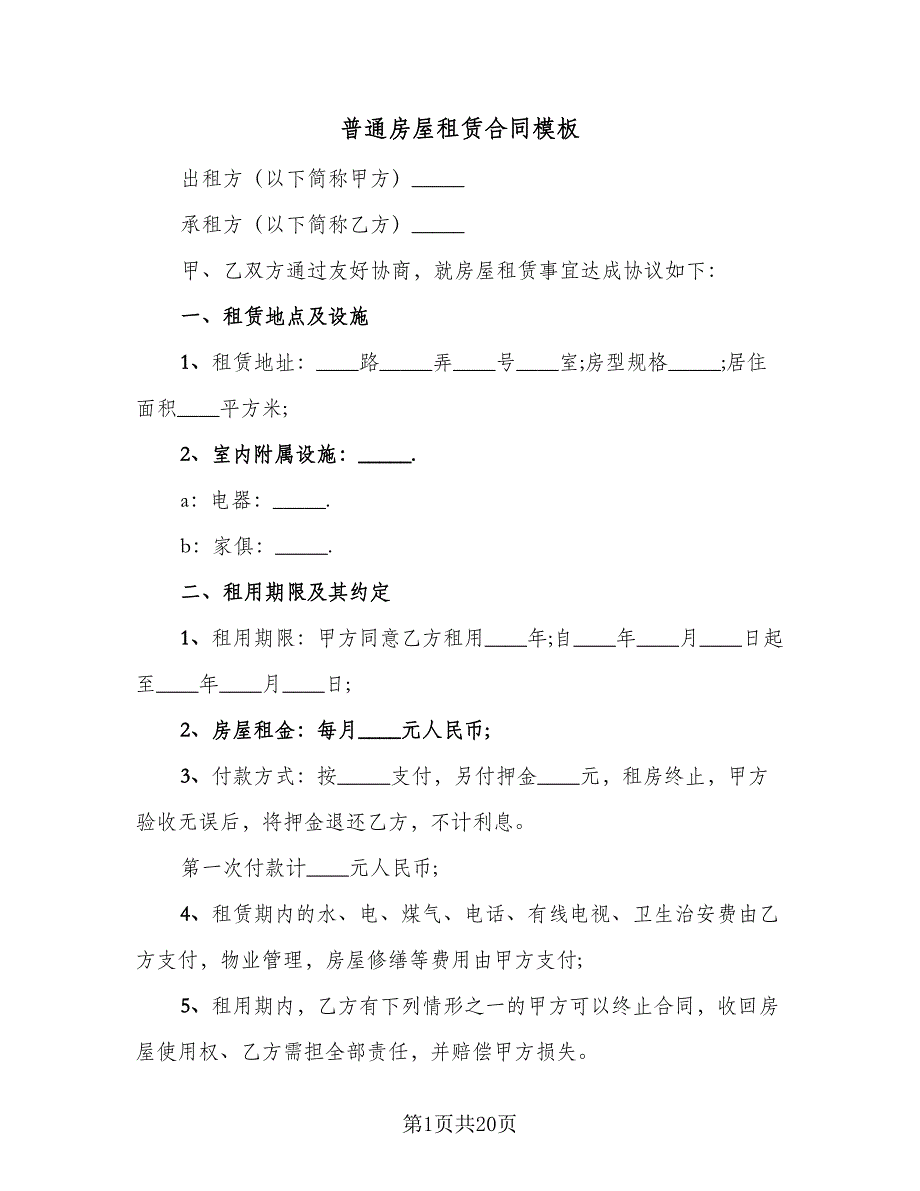 普通房屋租赁合同模板
出租方（以下简称甲方）_____
承租方（以下简称乙方）_____
甲、乙双方通过友好协商，就房屋租赁事宜达成协议如下：
一、租赁地点及设施
1、租赁地址：____路_____弄____号____室;房型规格_____;居住
面积____平方米;
2、室内附属设施：_____.
a：电器：_____.
b：家俱：_____.
二、租用期限及其约定
1、租用期限：甲方同意乙方租用____年;自____年____月____日起
至____年____月____日;
2、房屋租金：每月____元人民币;
3、付款方式：按_____支付，另付押金____元，租房终止，甲方
验收无误后，将押金退还乙方，不计利息。
第一次付款计____元人民币;
4、租赁期内的水、电、煤气、电话、有线电视、卫生治安费由乙
方支付，物业管理，房屋修缮等费用由甲方支付;
5、租用期内，乙方有下列情形之一的甲方可以终止合同，收回房
屋使用权、乙方需担全部责任，并赔偿甲方损失。
第1页共20页